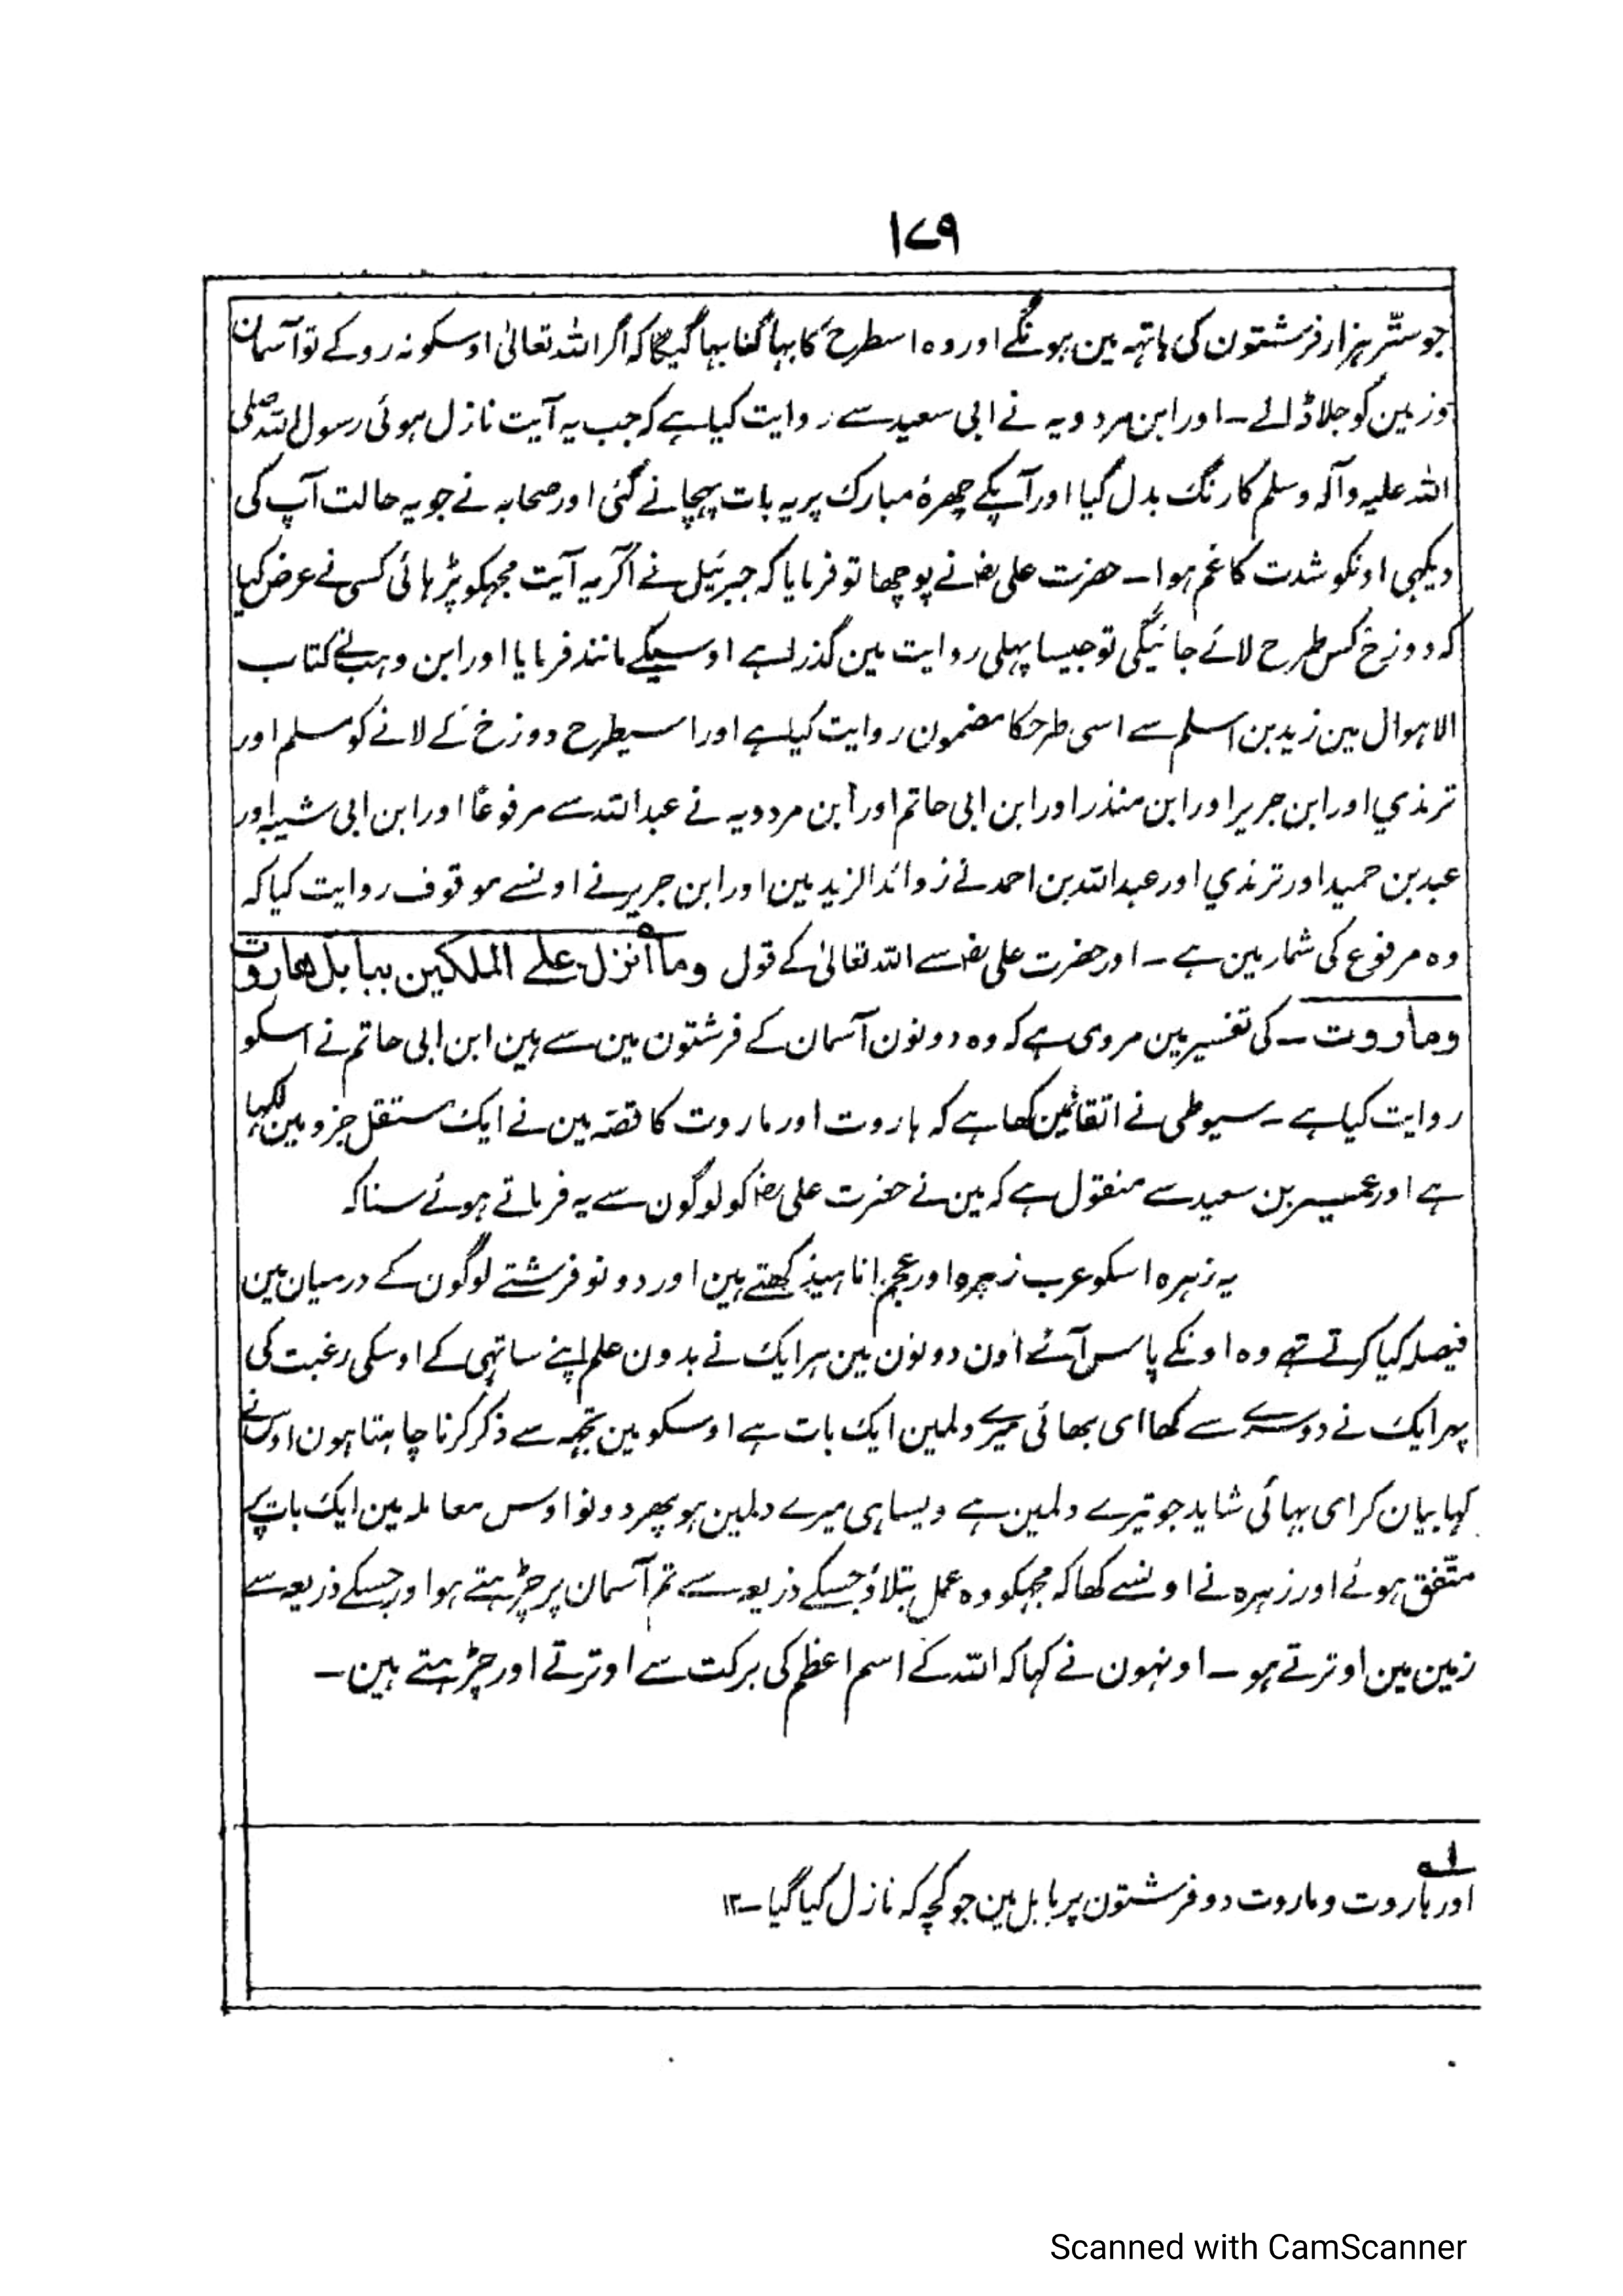 ۱۷۹
جو ستّر ہزار فرشتون کی ہاتہہ مین ہونگے اور وہ اسطرح کا بہاگنا بہاگیگا کہ اگر اللہ تعالیٰ اوسکو نہ روکے تو آسمان
وزمین کو جلا ڈالے ـ اور ابن مردویہ نے ابی سعید سے روایت کیا ہے کہ جب یہ آیت نازل ہوئی رسول اللہ صلی
اللہ علیہ وآلہ وسلم کا رنگ بدل گیا اور آپکے چہرۂ مبارک پر یہ بات پہچانے گئی اور صحابہ نے جو یہ حالت آپ کی
دیکہی اونکو شدت کا غم ہوا ـ حضرت علی رضؓ نے پوچھا تو فرمایا کہ جبرئیل نے آکر یہ آیت مجہکو پڑہائی کسی نے عرض کیا
کہ دوزخ کس طرح لائے جائیگی تو جیسا پہلی روایت مین گذرا ہے اوسیکے مانند فرمایا اور ابن وہب نے کتاب
الاہوال مین زید بن اسلم سے اسی طرحکا مضمون روایت کیا ہے اور اسیطرح دوزخ کے لانے کو مسلم اور
ترمذی اور ابن جریر اور ابن منذر اور ابن ابی حاتم اور ابن مردویہ نے عبد اللہ سے مرفوعًا اور ابن ابی شیبہ اور
عبد بن حمید اور ترمذی اور عبد اللہ بن احمد نے زوائد الزید مین اور ابن جریر نے اونسے موقوف روایت کیا کہ
وہ مرفوع کی شمار مین ہے ـ اور حضرت علی رضؓ سے اللہ تعالیٰ کے قول وما انزل علے الملکین ببابل ھاروت
وماروت ـ کی تفسیر مین مروی ہے کہ وہ دونون آسمان کے فرشتون مین سے ہین ابن ابی حاتم نے اسکو
روایت کیا ہے ـ سیوطی نے اتقانمین کھا ہے کہ ہاروت اور ماروت کا قصّہ مین نے ایک مستقل جزو مین لکہا
ہے اور عمیر بن سعید سے منقول ہے کہ مین نے حضرت علی رضؓ کو لوگون سے یہ فرماتے ہوئے سنا کہ
یہ زہرہ اسکو عرب زہرہ اور عجم اناہیذ کہتے ہین اور دونو فرشتے لوگون کے درمیان مین
فیصلہ کیا کرتے تہے وہ اونکے پاس آئے اون دونون مین ہر ایک نے بدون علم اپنے ساتہی کے اوسکی رغبت کی
پہر ایک نے دوسرے سے کھا ای بھائی میرے دلمین ایک بات ہے اوسکو مین تجہہ سے ذکر کرنا چاہتا ہون اوسنے
کہا بیان کر ای بہائی شاید جو تیرے دلمین ہے ویسا ہی میرے دلمین ہو پھر دونو اوس معاملہ مین ایک بات پر
متّفق ہوئے اور زہرہ نے اونسے کھا کہ مجہکو وہ عمل بتلاؤ جسکے ذریعہ سے تم آسمان پر چڑہتے ہو اور جسکے ذریعہ سے
زمین مین اوترتے ہو ـ اونہون نے کہا کہ اللہ کے اسم اعظم کی برکت سے اوترتے اور چڑہتے ہین ـ
لـه
اور ہاروت و ماروت دو فرشتون پر بابل مین جو کچہ کہ نازل کیا گیا ـ ۱۲
Scanned with CamScanner